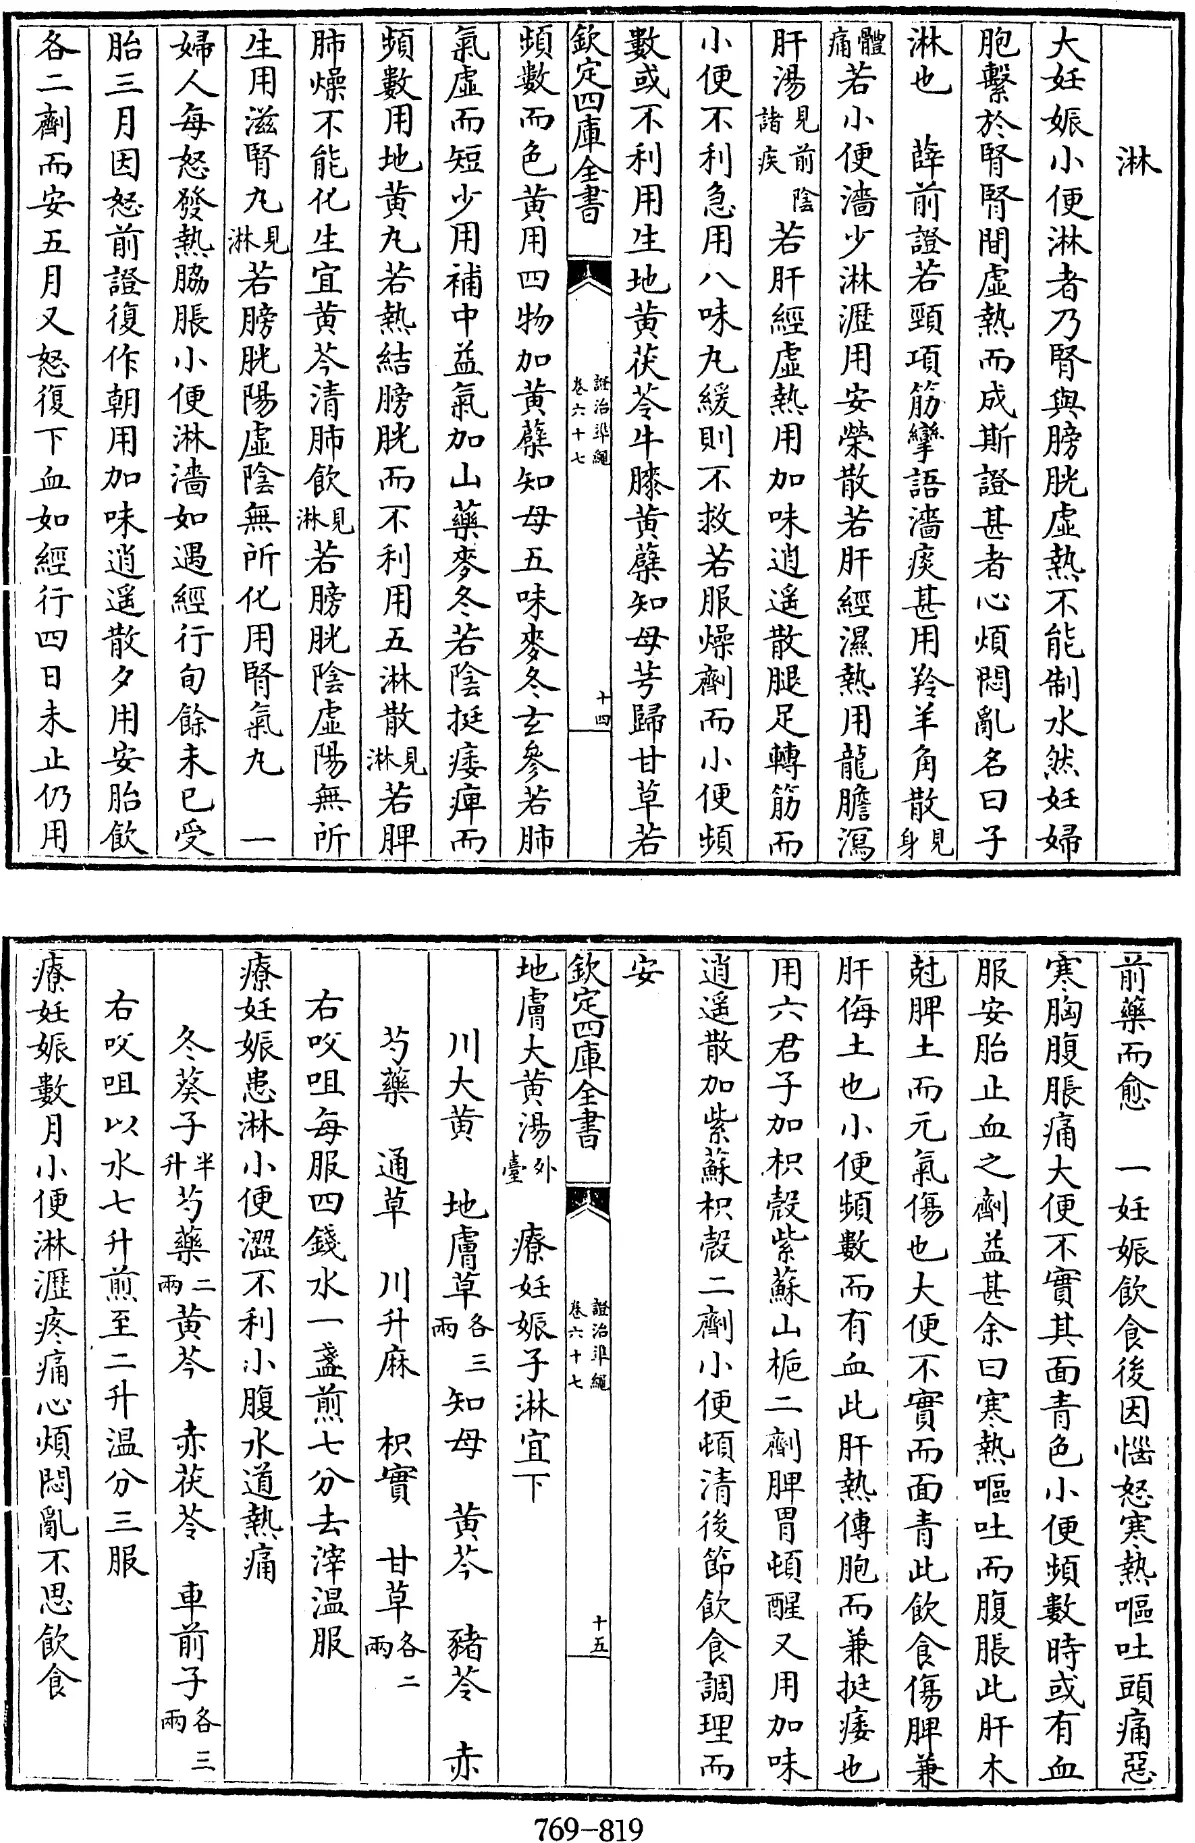 淋
大妊娠小便淋者乃腎與膀胱虛熱不能制水然妊婦
胞繫於腎腎間虛熱而成斯證甚者心煩悶亂名曰子
淋也　薛前證若頸項筋攣語濇痰甚用羚羊角散見身
體痛若小便濇少淋瀝用安榮散若肝經濕熱用龍膽瀉
肝湯見前陰諸疾若肝經虛熱用加味逍遥散腿足轉筋而
小便不利急用八味丸緩則不救若服燥劑而小便頻
數或不利用生地黄茯苓牛膝黄蘗知母芎歸甘草若
欽定四庫全書　證治準繩卷六十七　十四
頻數而色黄用四物加黄蘗知母五味麥冬玄參若肺
氣虛而短少用補中益氣加山藥麥冬若陰挺痿痺而
頻數用地黄丸若熱結膀胱而不利用五淋散見淋若脾
肺燥不能化生宜黄芩清肺飲見淋若膀胱陰虛陽無所
生用滋腎丸見淋若膀胱陽虛陰無所化用腎氣丸　一
婦人每怒發熱脇脹小便淋濇如遇經行旬餘未已受
胎三月因怒前證復作朝用加味逍遥散夕用安胎飲
各二劑而安五月又怒復下血如經行四日未止仍用
前藥而愈　一妊娠飲食後因惱怒寒熱嘔吐頭痛惡
寒胸腹脹痛大便不實其面青色小便頻數時或有血
服安胎止血之劑益甚余曰寒熱嘔吐而腹脹此肝木
尅脾土而元氣傷也大便不實而面青此飲食傷脾兼
肝侮土也小便頻數而有血此肝熱傳胞而兼挺痿也
用六君子加枳殼紫蘇山梔二劑脾胃頓醒又用加味
逍遥散加紫蘇枳殼二劑小便頓清後節飲食調理而
安
欽定四庫全書　證治準繩卷六十七　十五
地膚大黄湯外臺　療妊娠子淋宜下
川大黄　地膚草各三兩　知母　黄芩　豬苓　赤
芍藥　通草　川升麻　枳實　甘草各二兩
右㕮咀每服四錢水一盞煎七分去滓温服
療妊娠患淋小便澀不利小腹水道熱痛
冬葵子半升　芍藥二兩　黄芩　赤茯苓　車前子各三兩
右㕮咀以水七升煎至二升温分三服
療妊娠數月小便淋瀝疼痛心煩悶亂不思飲食
769-819